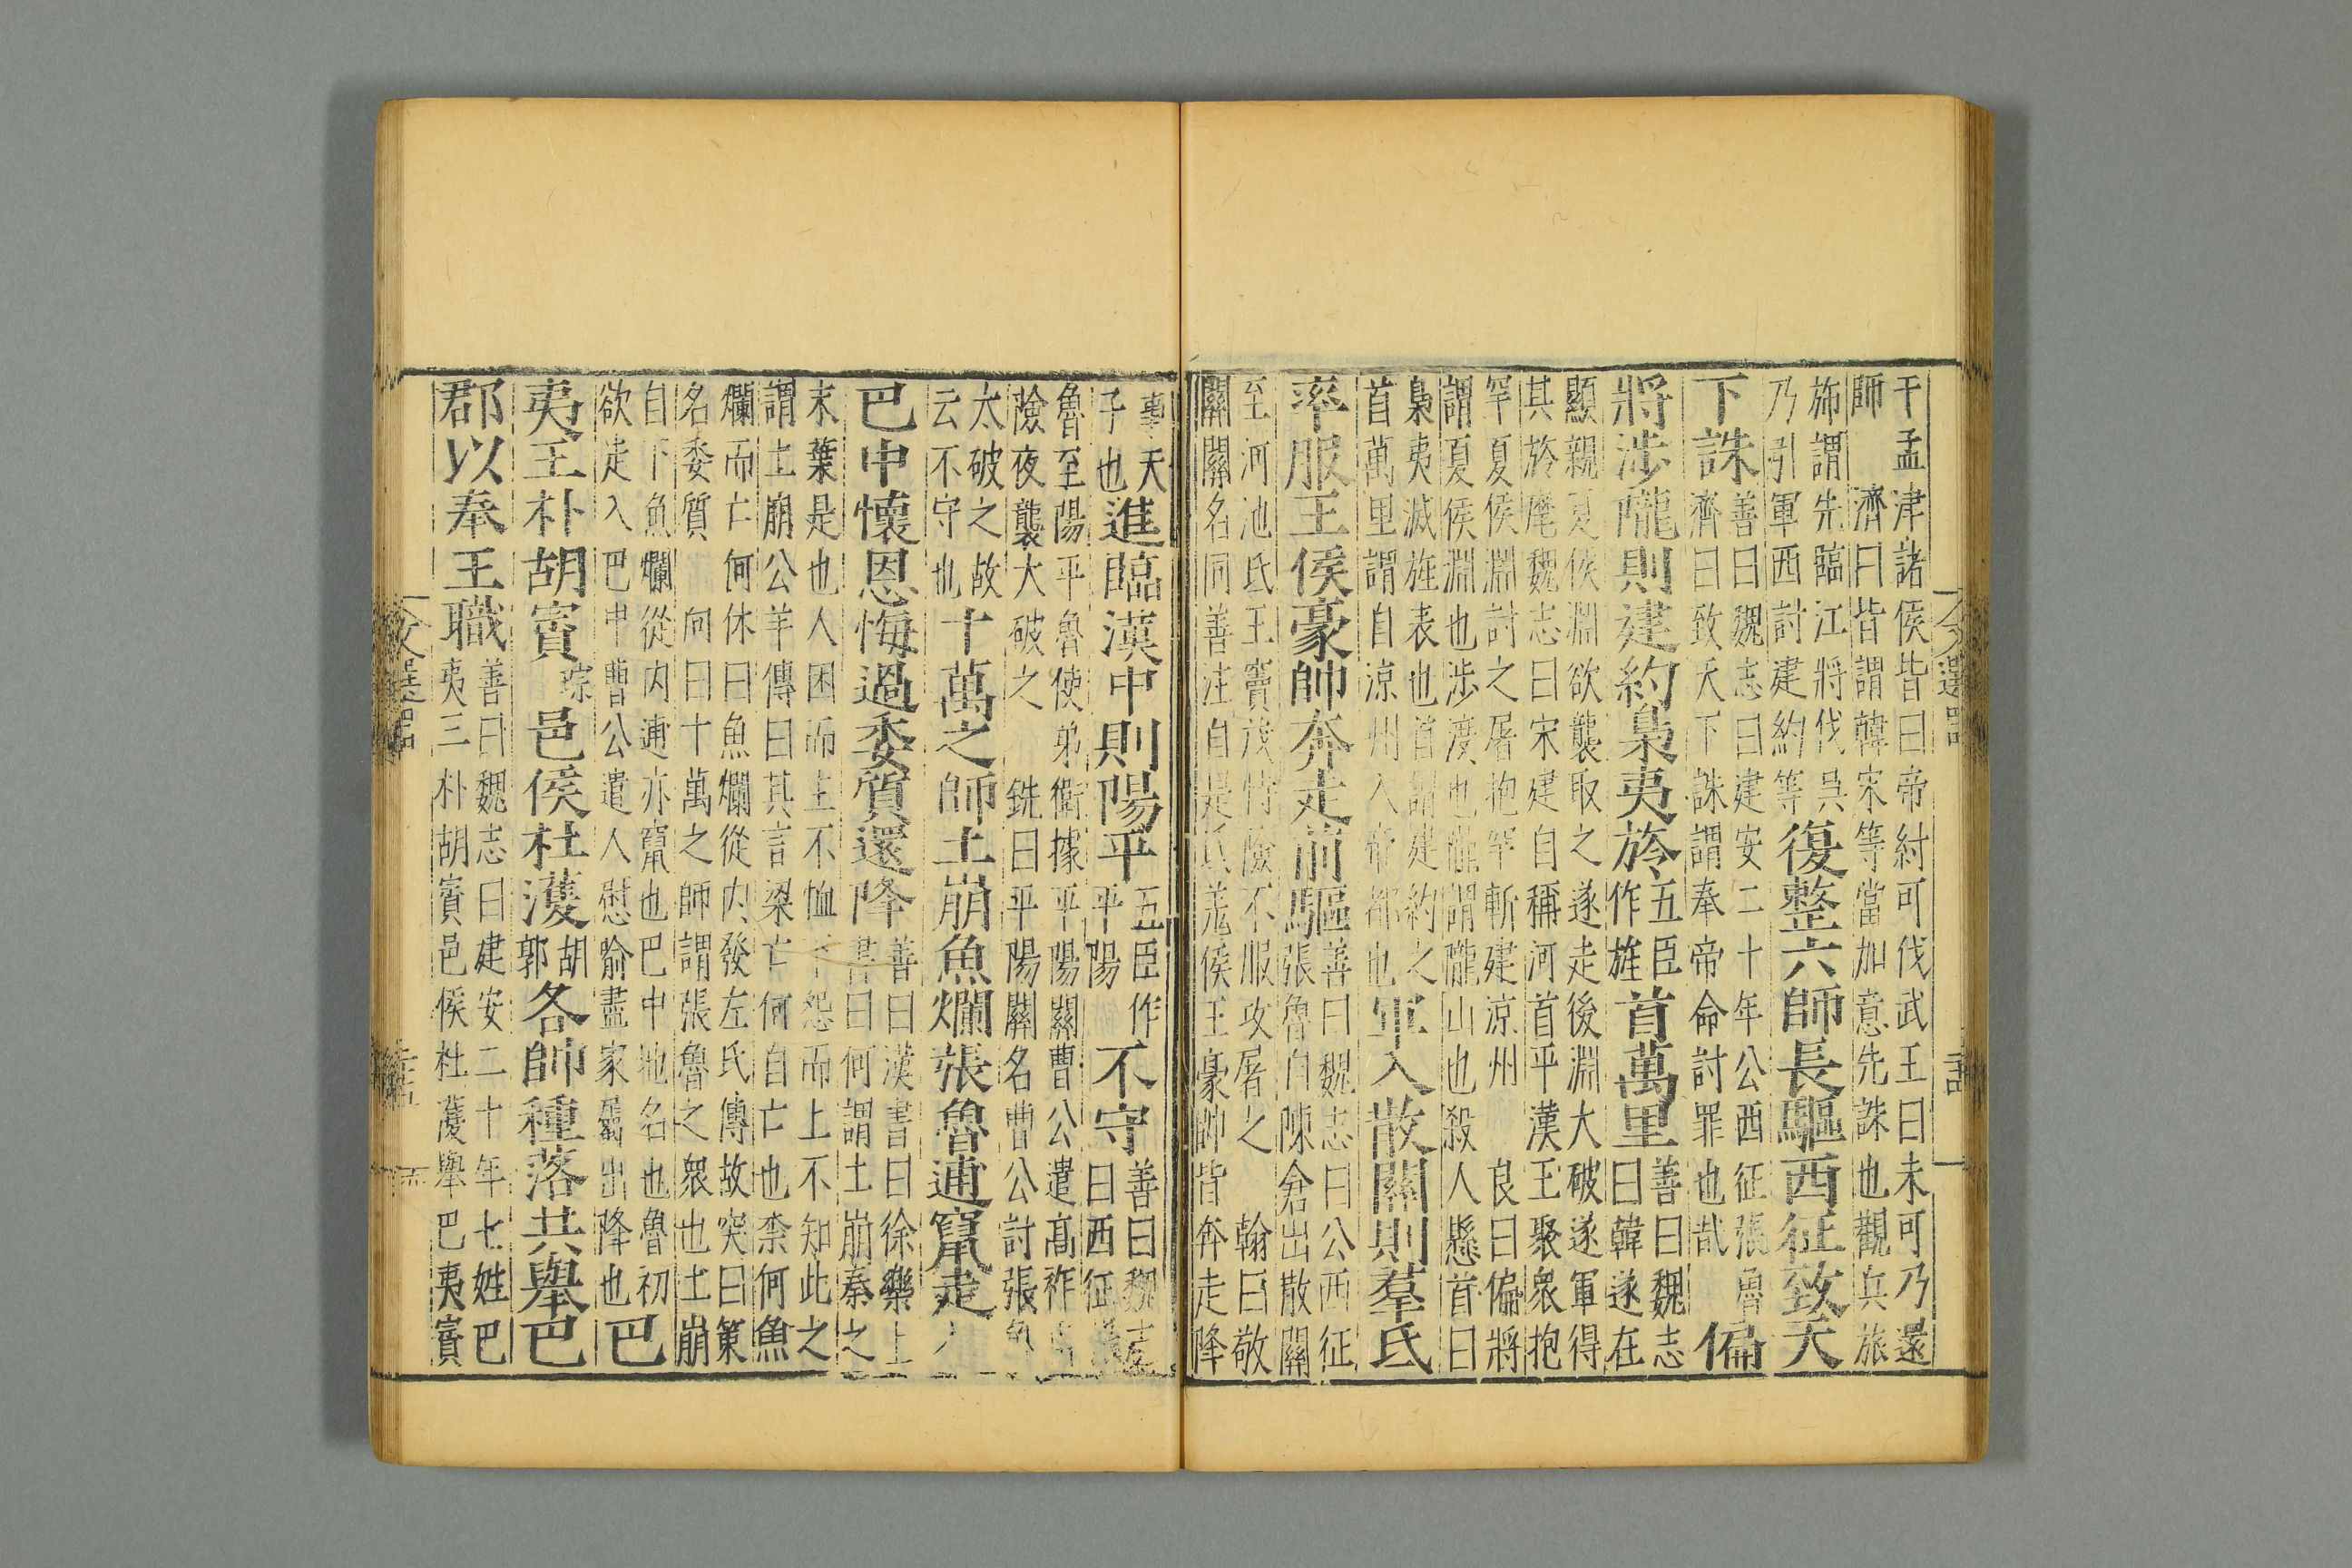 干孟津諸侯皆曰帝紂可伐武王曰未可乃還
師 濟曰皆謂韓宋等當加意先誅也觀兵旅
斾謂先臨江將伐吳
乃引軍西討建約等
復整六師長驅西征致天
下誅
善曰魏志曰建安二十年公西征張魯
濟曰致天下誅謂奉帝命討罪也哉
偏
將涉隴則建約梟夷旍
五臣
作旌
首萬里
善曰魏志
曰韓遂在
顯親夏侯淵欲襲取之遂走後淵大破遂軍得
其旍麾魏志曰宋建自稱河首平漢王聚衆抱
罕夏侯淵討之屠抱罕斬建凉州 良曰偏將
謂夏侯淵也涉渡也隴謂隴山也殺人懸首曰
梟夷滅旌表也首謂建約之
首萬里謂自凉州入帝都也
軍入散關則羣氐
率服王侯豪帥奔走前驅
善曰魏志曰公西征
張魯自陳倉出散關
至河池氐王竇茂恃險不服攻屠之 翰曰敬
關關名同善注自是氐羌侯王豪帥皆奔走降
事天
子也
進臨漢中則陽平
五臣作
平陽
不守
善曰魏志
曰西征
魯至陽平魯使弟衞據平陽關曹公遣高祚
險夜襲大破之 銑曰平陽關名曹公討張魯
太破之故
云不守也
十萬之師土崩魚爛張魯逋竄走
巴中懷恩悔過委質還降
善曰漢書曰徐樂上
書曰何謂土崩秦之
末葉是也人困而主不恤下怨而上不知此之
謂土崩公羊傳曰其言梁亡何自亡也柰何魚
爛而亡何休曰魚爛從内發左氏傳故突曰策
名委質 向曰十萬之師謂張魯之衆也土崩
自下魚爛從内逋亦竄也巴中地名也魯初
欲走入巴中曹公遣人慰喻盡家屬出降也
巴
夷王朴胡賨
琮
邑侯杜濩
胡
郭
各帥種落共舉巴
郡以奉王職
善曰魏志曰建安二十年七姓巴
夷三朴胡賨邑侯杜濩舉巴夷賨